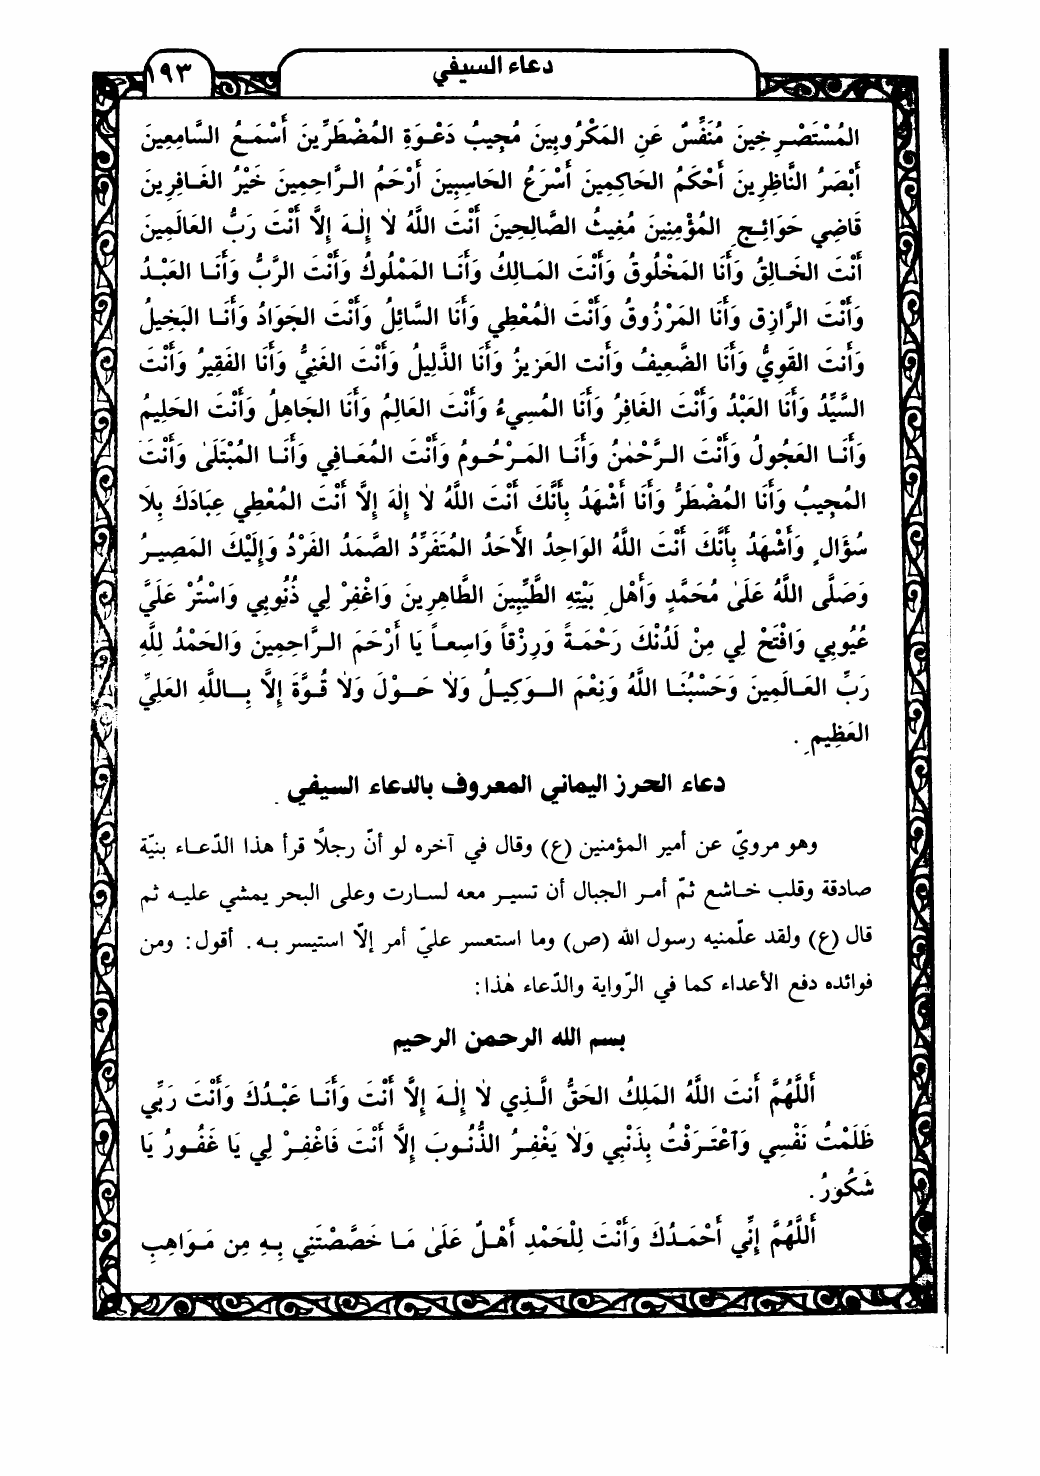 دعاء السيفي
١٩٣
المُسْتَصْرِخِينَ مُنَفِّسٌ عَنِ المَكْرُوبِينَ مُجِيبُ دَعْوَةِ المُضْطَرِّينَ أَسْمَعُ السَّامِعِينَ
أَبْصَرُ النَّاظِرِينَ أَحْكَمُ الحَاكِمِينَ أَسْرَعُ الحَاسِبِينَ أَرْحَمُ الرَّاحِمِينَ خَيْرُ الغَافِرِينَ
قَاضِي حَوَائِجِ المُؤْمِنِينَ مُغِيثُ الصَّالِحِينَ أَنْتَ اللَّهُ لاَ إِلٰهَ إِلَّا أَنْتَ رَبُّ العَالَمِينَ
أَنْتَ الخَالِقُ وَأَنَا المَخْلُوقُ وَأَنْتَ المَالِكُ وَأَنَا المَمْلُوكُ وَأَنْتَ الرَّبُّ وَأَنَا العَبْدُ
وَأَنْتَ الرَّازِق وَأَنَا المَرْزُوقُ وَأَنْتَ المُعْطِي وَأَنَا السَّائِلُ وَأَنْتَ الجَوَادُ وَأَنَا البَخِيلُ
وَأَنْتَ القَوِيُّ وَأَنَا الضَّعِيفُ وَأَنت العَزِيزُ وَأَنَا الذَّلِيلُ وَأَنْتَ الغَنِيُّ وَأَنَا الفَقِيرُ وَأَنْتَ
السَّيِّدُ وَأَنَا العَبْدُ وَأَنْتَ الغَافِرُ وَأَنَا المُسِيءُ وَأَنْتَ العَالِمُ وَأَنَا الجَاهِلُ وَأَنْتَ الحَلِيمُ
وَأَنَا العَجُولُ وَأَنْتَ الرَّحْمٰنُ وَأَنَا المَرْحُومُ وَأَنْتَ المُعَافِي وَأَنَا المُبْتَلَىٰ وَأَنْتَ
المُجِيبُ وَأَنَا المُضْطَرُّ وَأَنَا أَشْهَدُ بِأَنَّكَ أَنْتَ اللَّهُ لاَ إِلٰهَ إِلَّا أَنْتَ المُعْطِي عِبَادَكَ بِلَا
سُؤَالٍ وَأَشْهَدُ بِأَنَّكَ أَنْتَ اللَّهُ الوَاحِدُ الأَحَدُ المُتَفَرِّدُ الصَّمَدُ الفَرْدُ وَإِلَيْكَ المَصِيرُ
وَصَلَّى اللَّهُ عَلَىٰ مُحَمَّدٍ وَأَهْلِ بَيْتِهِ الطَّيِّبِينَ الطَّاهِرِينَ وَاغْفِرْ لِي ذُنُوبِي وَاسْتُرْ عَلَيَّ
عُيُوبِي وَافْتَحْ لِي مِنْ لَدُنْكَ رَحْمَةً وَرِزْقاً وَاسِعاً يَا أَرْحَمَ الرَّاحِمِينَ وَالحَمْدُ لِلَّهِ
رَبِّ العَالَمِينَ وَحَسْبُنَا اللَّهُ وَنِعْمَ الوَكِيلُ وَلاَ حَوْلَ وَلاَ قُوَّةَ إِلَّا بِاللَّهِ العَلِيِّ
العَظِيمِ .
دعاء الحرز اليماني المعروف بالدعاء السيفي
وهو مرويّ عن أمير المؤمنين (ع) وقال في آخره لو أنّ رجلاً قرأ هذا الدّعاء بنيّة
صادقة وقلب خاشع ثمّ أمر الجبال أن تسير معه لسارت وعلى البحر يمشي عليه ثم
قال (ع) ولقد علّمنيه رسول الله (ص) وما استعسر عليّ أمر إلاّ استيسر به. أقول: ومن
فوائده دفع الأعداء كما في الرّواية والدّعاء هٰذا:
بسم الله الرحمن الرحيم
أَللَّهُمَّ أَنتَ اللَّهُ المَلِكُ الحَقُّ الَّذِي لاَ إِلٰهَ إِلَّا أَنْتَ وَأَنَا عَبْدُكَ وَأَنْتَ رَبِّي
ظَلَمْتُ نَفْسِي وَآعْتَرَفْتُ بِذَنْبِي وَلاَ يَغْفِرُ الذُّنُوبَ إِلَّا أَنْتَ فَاغْفِرْ لِي يَا غَفُورُ يَا
شَكُورُ.
أَللَّهُمَّ إِنِّي أَحْمَدُكَ وَأَنْتَ لِلْحَمْدِ أَهْلٌ عَلَىٰ مَا خَصَّصْتَنِي بِهِ مِن مَوَاهِبِ